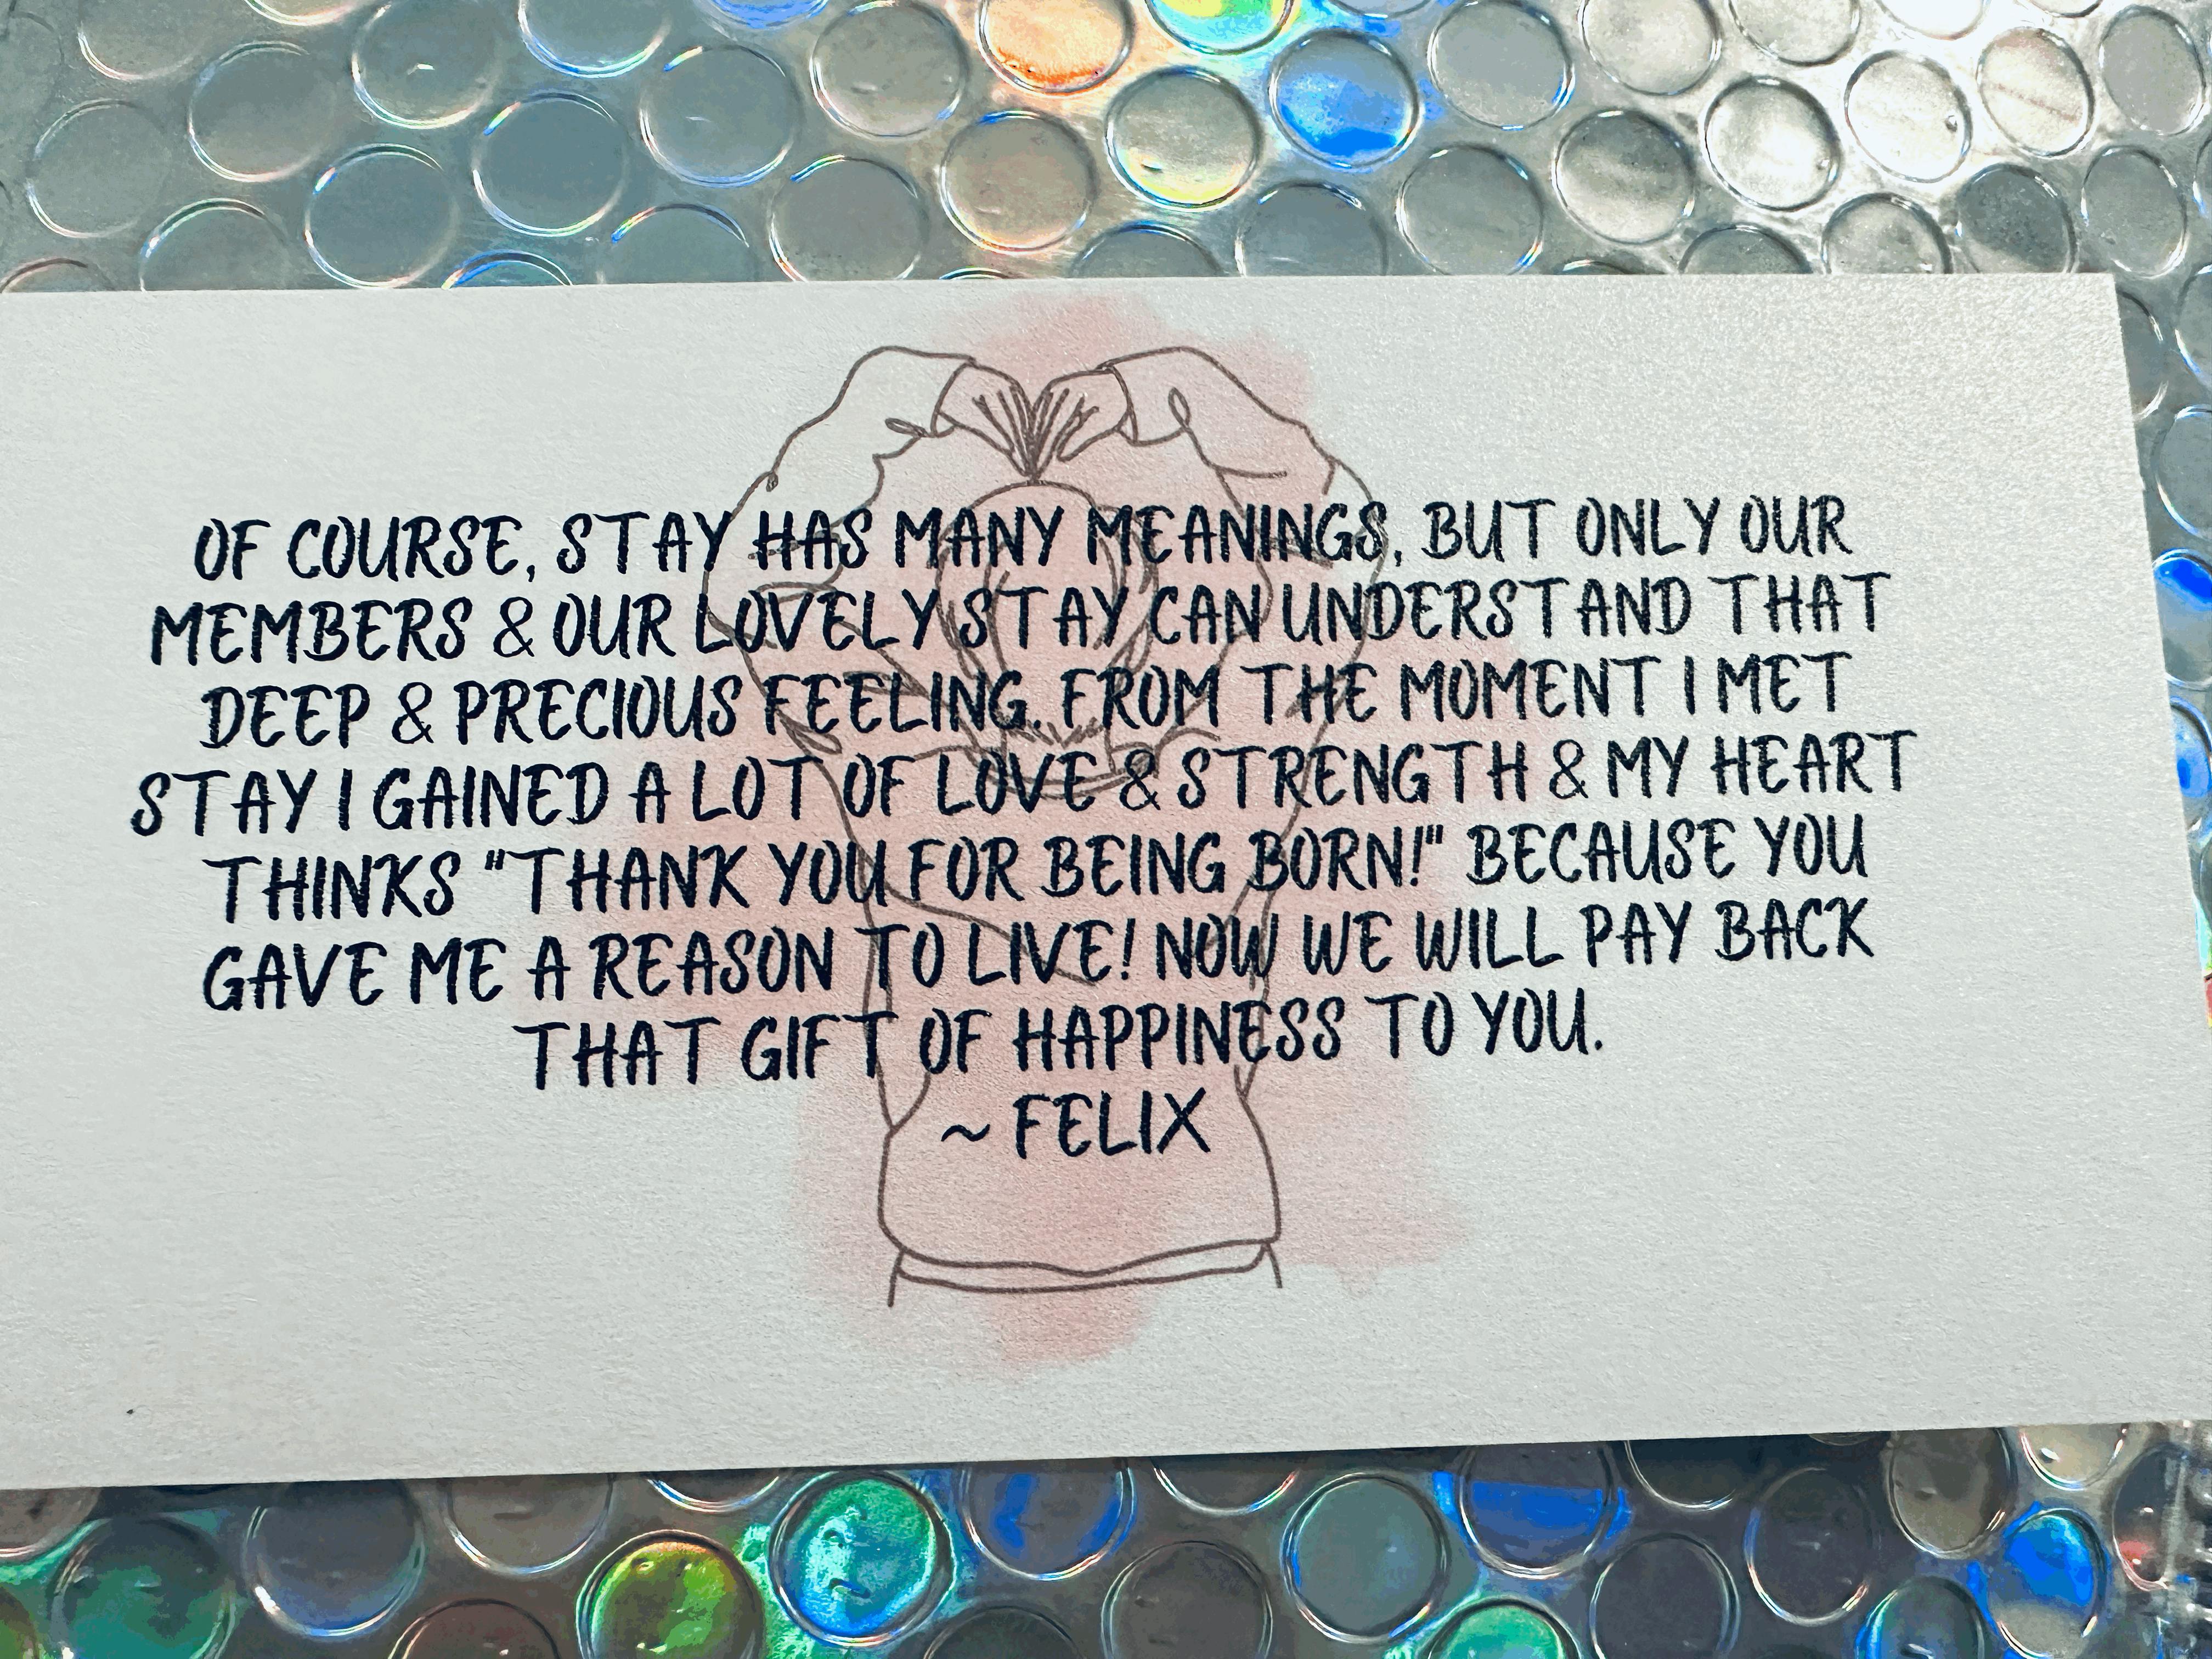 OF COURSE, STAY HAS MANY MEANINGS, BUT ONLY OUR
MEMBERS & OUR LOVELY STAY CAN UNDERSTAND THAT
DEEP & PRECIOUS FEELING. FROM THE MOMENT I MET
STAY I GAINED A LOT OF LOVE & STRENGTH & MY HEART
THINKS "THANK YOU FOR BEING BORN!" BECAUSE YOU
GAVE ME A REASON TO LIVE! NOW WE WILL PAY BACK
THAT GIFT OF HAPPINESS TO YOU.
~ FELIX